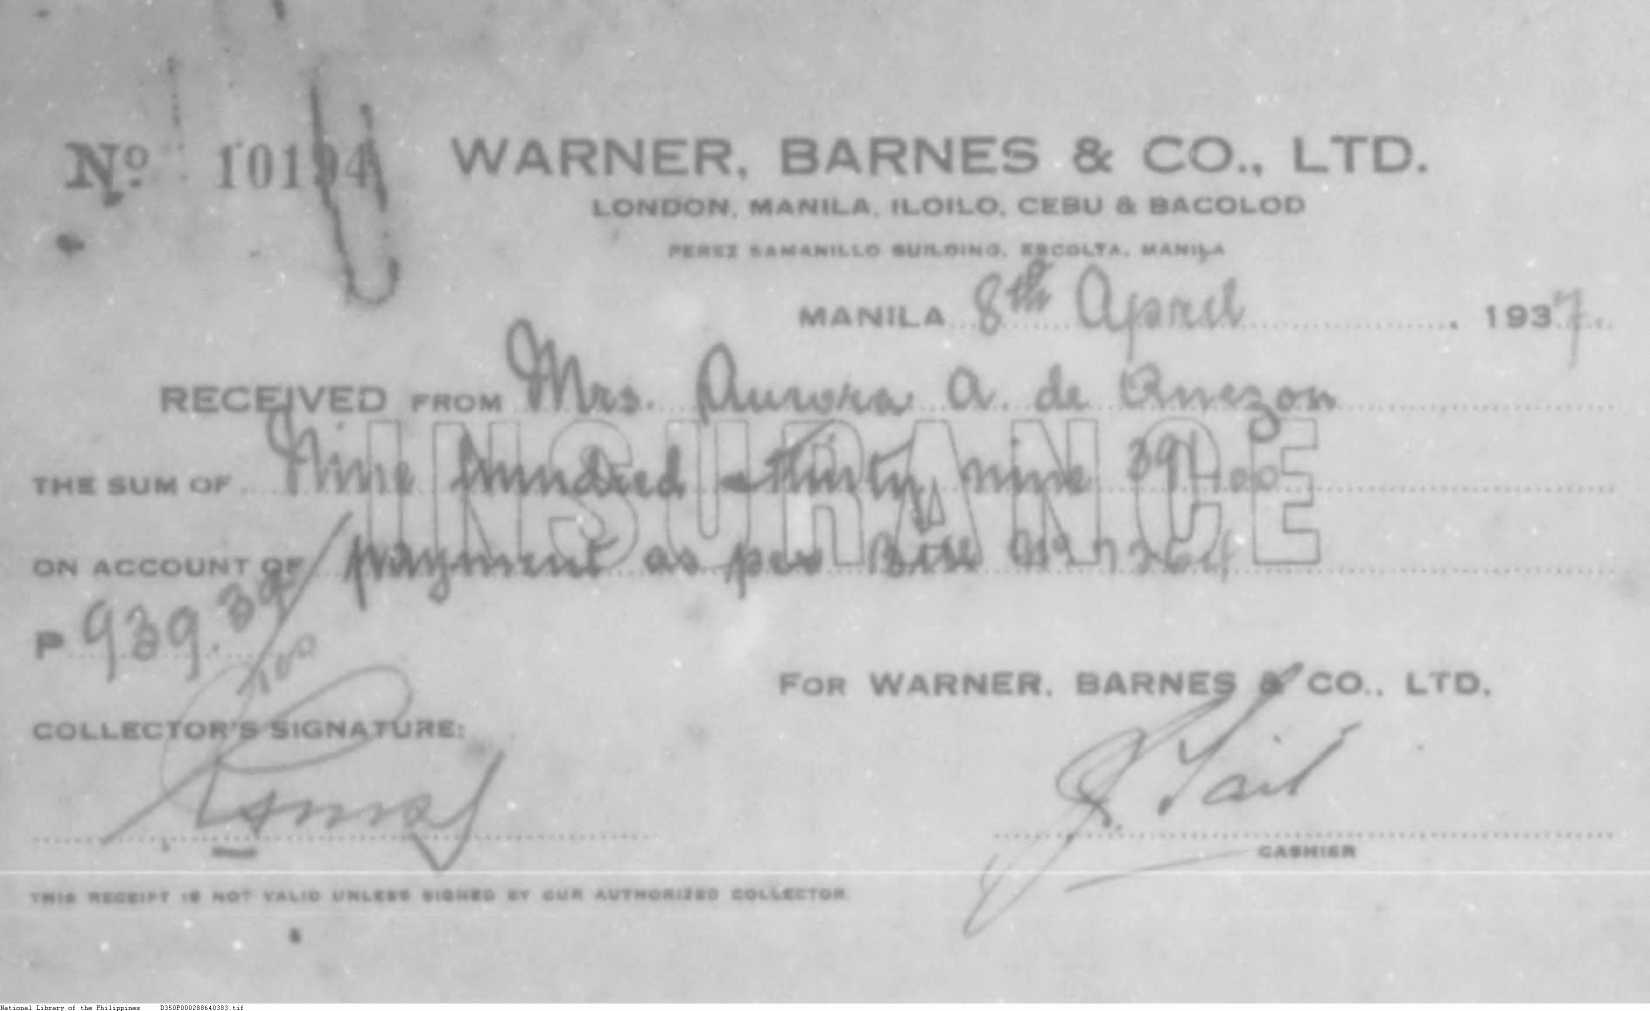 Nº 10194 WARNER, BARNES & CO., LTD.
LONDON, MANILA, ILOILO, CEBU & BACOLOD
PEREZ SAMANILLO BUILDING, ESCOLTA, MANILA
MANILA 8th April, 1937.
RECEIVED FROM Mrs. Aurora A. de Quezon
INSURANCE
THE SUM OF Nine hundred thirty nine 39/100
ON ACCOUNT OF payment as per Bill No 7264
P 939.39/100
FOR WARNER, BARNES & CO., LTD.
COLLECTOR'S SIGNATURE:
J. Tait
CASHIER
THIS RECEIPT IS NOT VALID UNLESS SIGNED BY OUR AUTHORIZED COLLECTOR
National Library of the Philippines D350P000288640383.tif